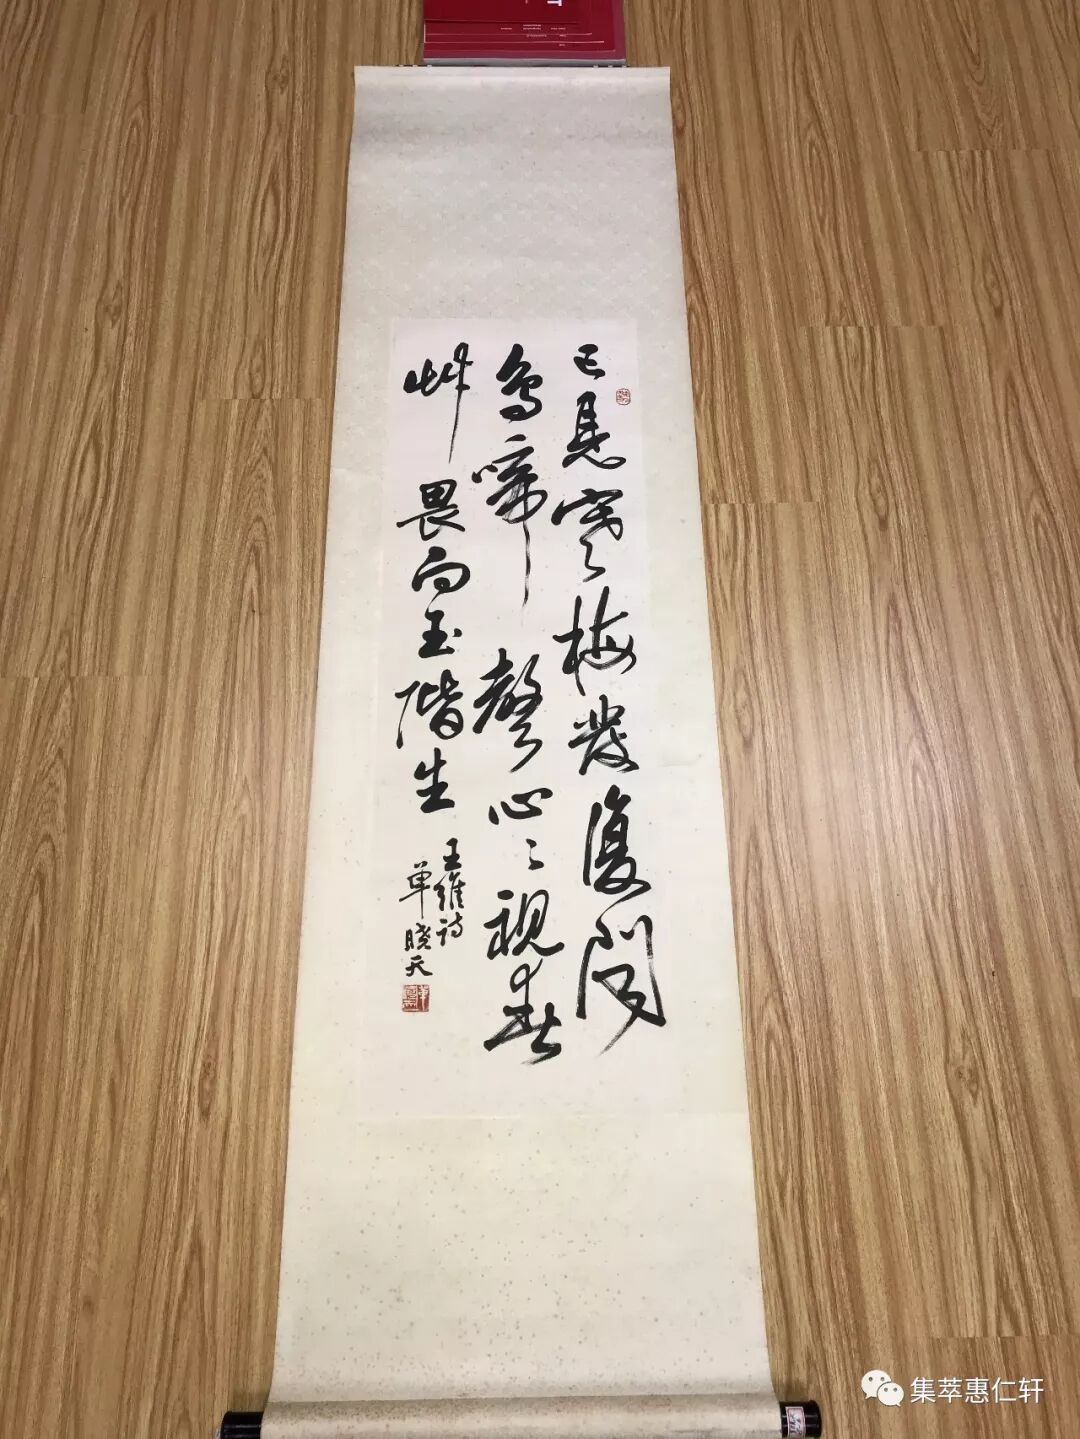 已見寒梅發復聞
鳥啼聲心心視春
艸畏向玉階生
王維詩
单曉天
集萃惠仁轩